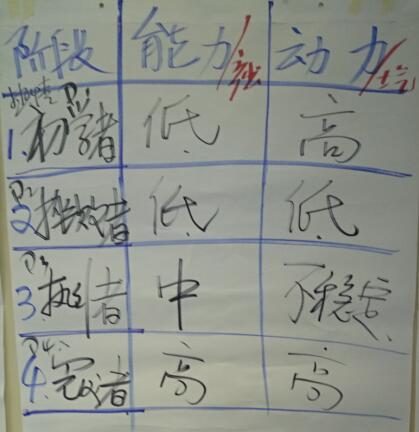 阶段 能力/ 动力/士气
P1
1.初者 低 高
P2
2.挫败者 低 低
P3
3.执行者 中 不稳定
P4
4.完成者 高 高